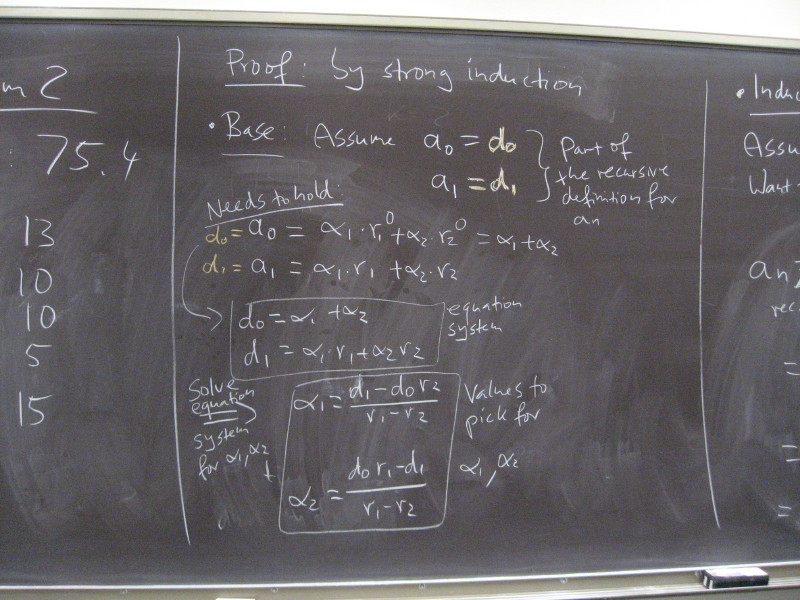 m 2
: 75.4
13
10
10
5
15
Proof: by strong induction
• Base: Assume a₀ = d₀
a₁ = d₁
Part of
the recursive
definition for
an
Needs to hold:
d₀ = a₀ = α₁·r₁⁰ + α₂·r₂⁰ = α₁ + α₂
d₁ = a₁ = α₁·r₁ + α₂·r₂
d₀ = α₁ + α₂
d₁ = α₁·r₁ + α₂ r₂
equation
system
Solve
equation
system
for α₁, α₂
α₁ = (d₁ - d₀ r₂)/(r₁ - r₂)
α₂ = (d₀ r₁ - d₁)/(r₁ - r₂)
Values to
pick for
α₁, α₂
• Induc
Assu
Want
an
rec
=
=
=